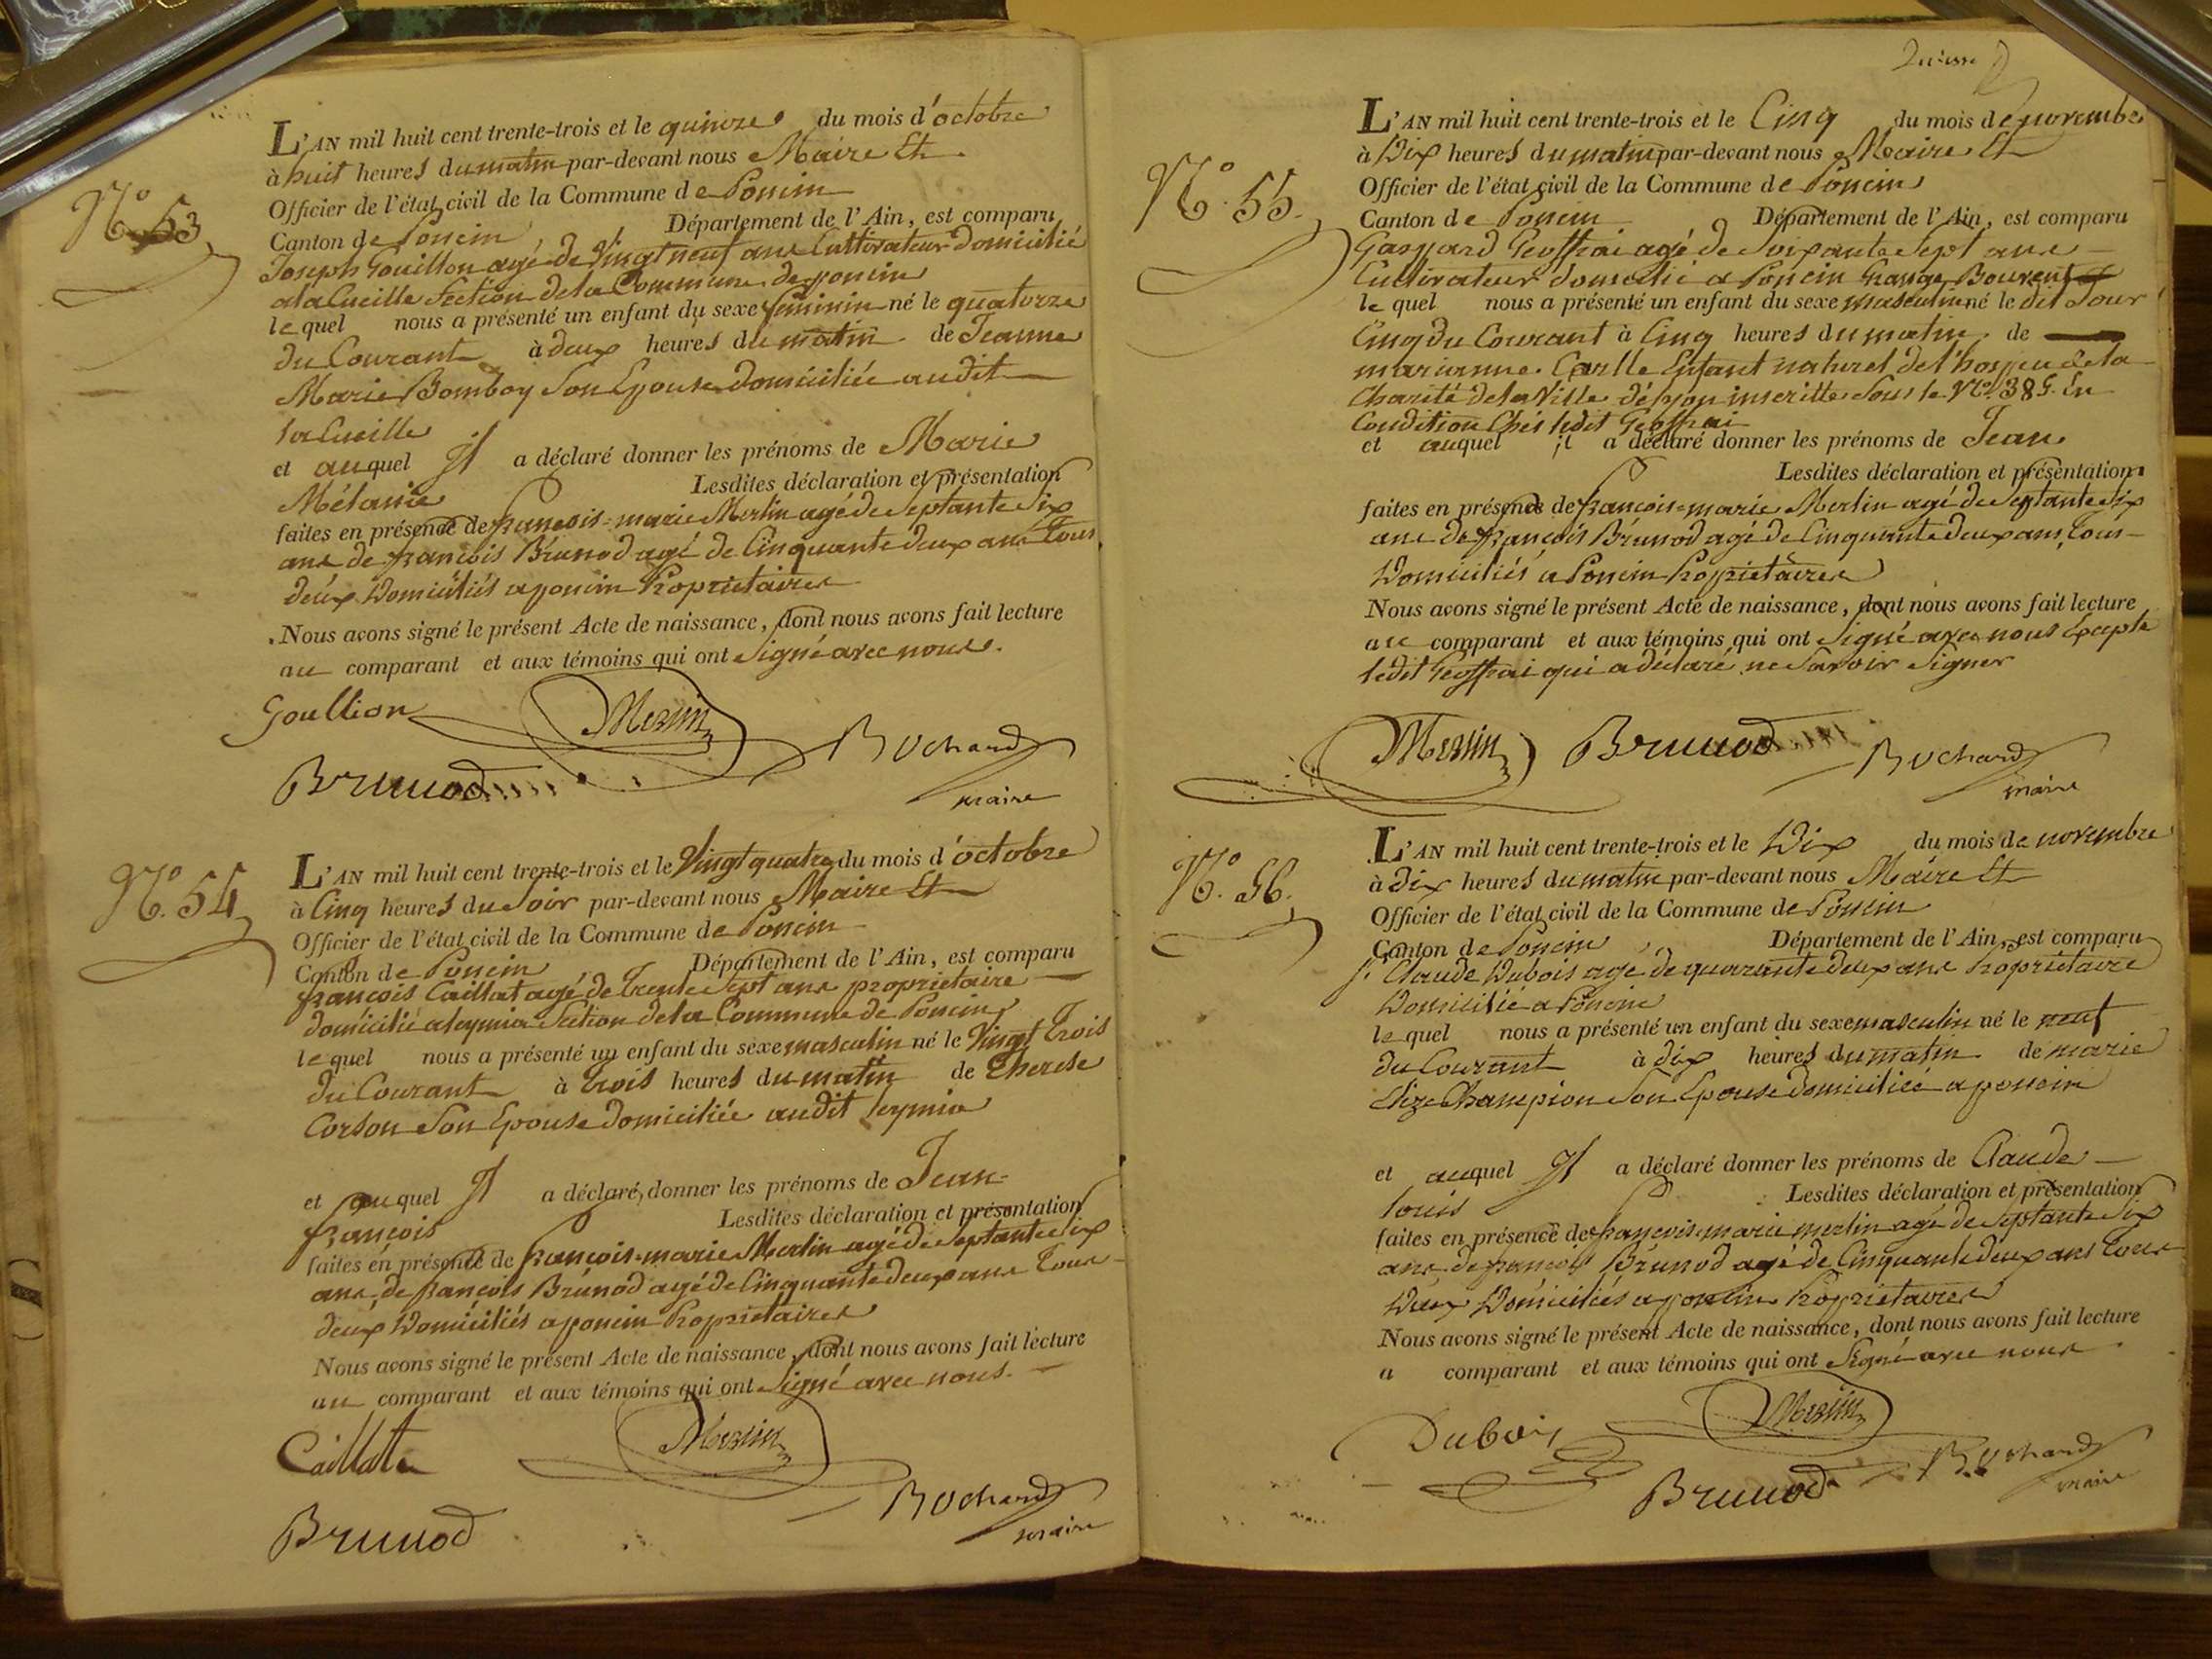 N.º 53
L'AN mil huit cent trente-trois et le quinze du mois d'octobre
à huit heures du matin par-devant nous Maire Et
Officier de l'état civil de la Commune de Poncin
Canton de Poncin Département de l'Ain, est comparu
Joseph Gouillon agé de Vingt neuf ans Cultivateur domicilié
a la Cueille Section de la Commune de poncin
le quel nous a présenté un enfant du sexe féminin né le quatorze
du Courant à deux heures du matin de Jeanne
Marie Bomboy Son Epouse domiciliée audit
la Cueille
et auquel Il a déclaré donner les prénoms de Marie
Mélanie Lesdites déclaration et présentation
faites en présence de françois-marie Merlin agé de Septante Six
ans de françois Brunod agé de Cinquante deux ans tous
deux Domiciliés a poncin Propriétaires
Nous avons signé le présent Acte de naissance, dont nous avons fait lecture
au comparant et aux témoins qui ont Signé avec nous.
Goullion Merlin
Brunod Bochard
maire
N.º 54
L'AN mil huit cent trente-trois et le Vingt quatre du mois d'octobre
à Cinq heures du Soir par-devant nous Maire Et
Officier de l'état civil de la Commune de Poncin
Canton de Poncin Département de l'Ain, est comparu
françois Caillat agé de trente Sept ans propriétaire
domicilié a leymia Section de la Commune de Poncin
le quel nous a présenté un enfant du sexe masculin né le Vingt trois
du Courant à trois heures du matin de therese
Corson Son Epouse domiciliée audit leymia
et auquel Il a déclaré donner les prénoms de Jean-
françois Lesdites déclaration et présentation
faites en présence de françois-marie Merlin agé de Septante Six
ans de françois Brunod agé de Cinquante deux ans tous
deux Domiciliés a poncin Propriétaires
Nous avons signé le présent Acte de naissance, dont nous avons fait lecture
au comparant et aux témoins qui ont Signé avec nous.
Caillat Merlin
Brunod Bochard
maire
N.º 55.
L'AN mil huit cent trente-trois et le Cinq du mois de novembre
à Dix heures du matin par-devant nous Maire Et
Officier de l'état civil de la Commune de Poncin
Canton de Poncin Département de l'Ain, est comparu
Gaspard Geoffrai agé de Soixante Sept ans
Cultivateur domicilié a Poncin Grange
le quel nous a présenté un enfant du sexe masculin né le dit Jour
Cinq du Courant à Cinq heures du matin de
marianne Enfant naturel de l'hospice de la
Charité de la Ville inscritte Sous le N.º 385. En
Condition Chés ledit Geoffrai
et auquel il a déclaré donner les prénoms de Jean
Lesdites déclaration et présentation
faites en présence de françois-marie Merlin agé de Septante Six
ans de françois Brunod agé de Cinquante deux ans, tous
Domiciliés a Poncin Propriétaires
Nous avons signé le présent Acte de naissance, dont nous avons fait lecture
au comparant et aux témoins qui ont Signé avec nous Excepté
ledit Geoffrai qui a déclaré ne Savoir Signer
Merlin Brunod Bochard
maire
N.º 56.
L'AN mil huit cent trente-trois et le Dix du mois de novembre
à dix heures du matin par-devant nous Maire Et
Officier de l'état civil de la Commune de Poncin
Canton de Poncin Département de l'Ain, est comparu
Claude Dubois agé de quarante deux ans Propriétaire
Domicilié a Poncin
le quel nous a présenté un enfant du sexe masculin né le neuf
du Courant à dix heures du matin de marie
Elize Champion Son Epouse domiciliée a poncin
et auquel Il a déclaré donner les prénoms de Claude
louis Lesdites déclaration et présentation
faites en présence de françois-marie merlin agé de Septante Six
ans de françois Brunod agé de Cinquante deux ans tous
Deux Domiciliés a poncin Propriétaires
Nous avons signé le présent Acte de naissance, dont nous avons fait lecture
a comparant et aux témoins qui ont Signé avec nous
Dubois Merlin
Brunod Bochard
maire